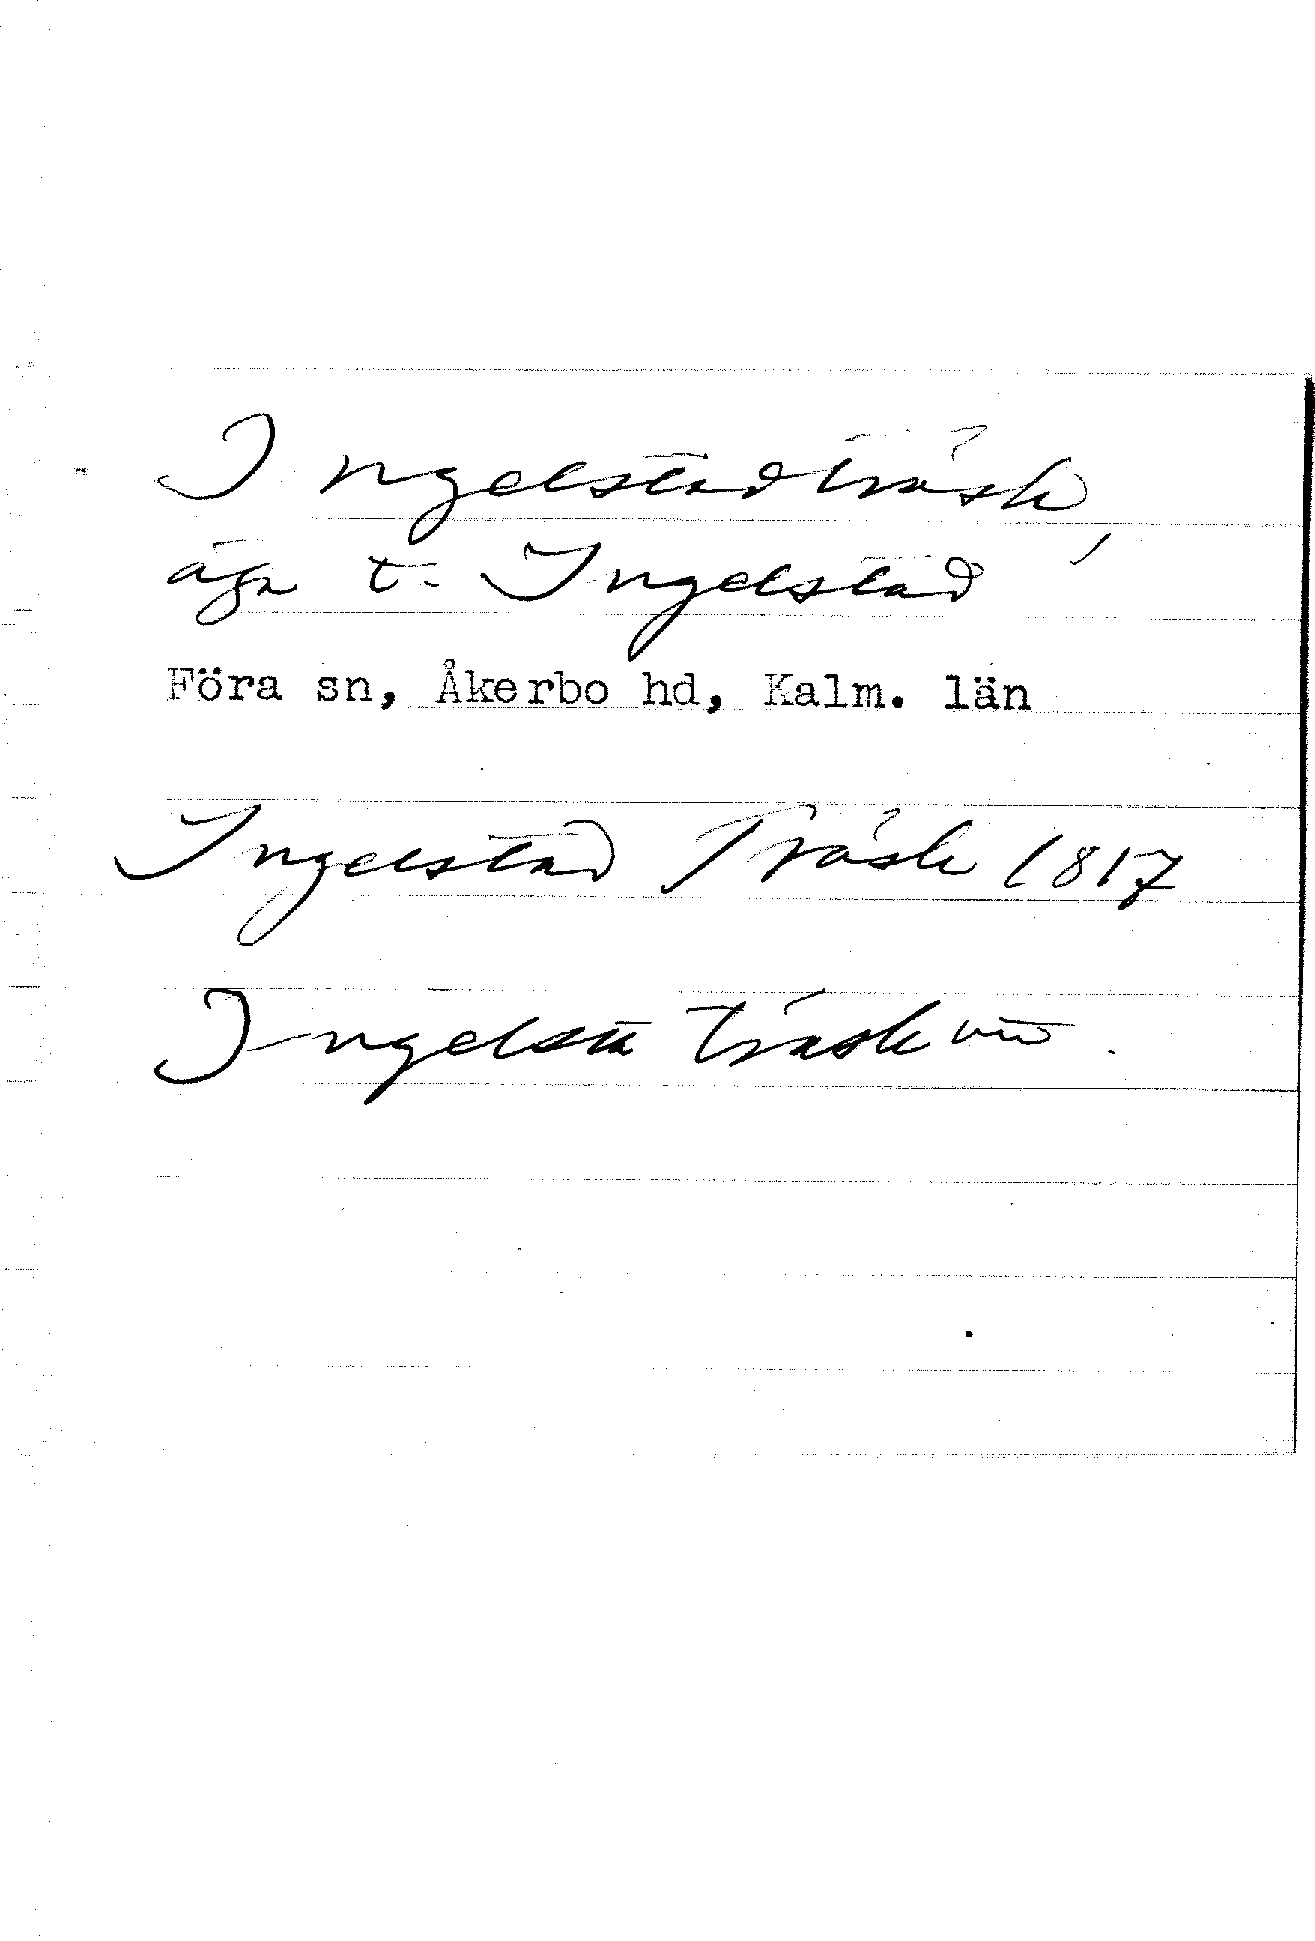 Ingelstadträsk,
äga t. Ingelstad
Föra sn, Åkerbo hd, Kalm. län
Ingelstad Träsk 1817
Ingelsta träsk